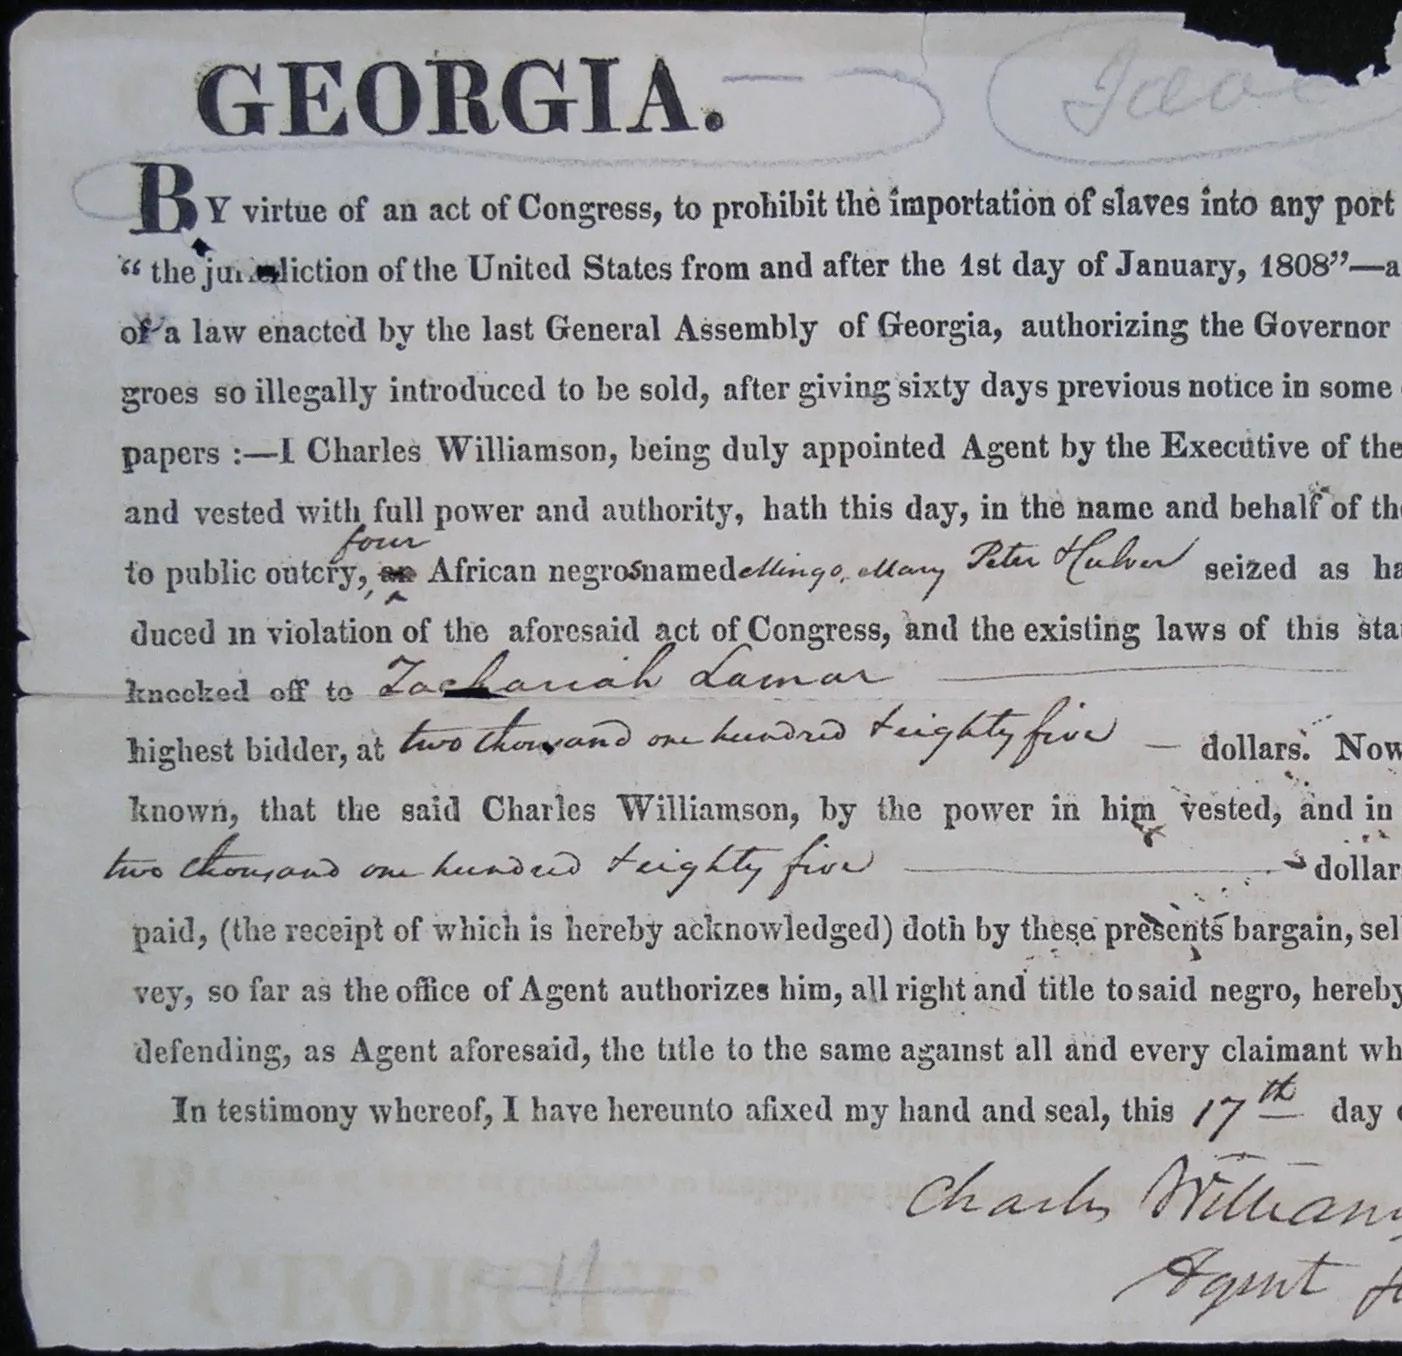 GEORGIA.
BY virtue of an act of Congress, to prohibit the importation of slaves into any port
“ the jurisdiction of the United States from and after the 1st day of January, 1808”—a
of a law enacted by the last General Assembly of Georgia, authorizing the Governor
groes so illegally introduced to be sold, after giving sixty days previous notice in some
papers :—I Charles Williamson, being duly appointed Agent by the Executive of the
and vested with full power and authority, hath this day, in the name and behalf of th
four
to public outcry, an African negros named Mingo, Mary Peter & Culver seized as ha
duced in violation of the aforesaid act of Congress, and the existing laws of this sta
knocked off to Zachariah Lamar
highest bidder, at two thousand one hundred & eighty five — dollars. Now
known, that the said Charles Williamson, by the power in him vested, and in
two thousand one hundred & eighty five dollar
paid, (the receipt of which is hereby acknowledged) doth by these presents bargain, sel
vey, so far as the office of Agent authorizes him, all right and title to said negro, hereby
defending, as Agent aforesaid, the title to the same against all and every claimant wh
In testimony whereof, I have hereunto afixed my hand and seal, this 17th day
Charles Williams
Agent